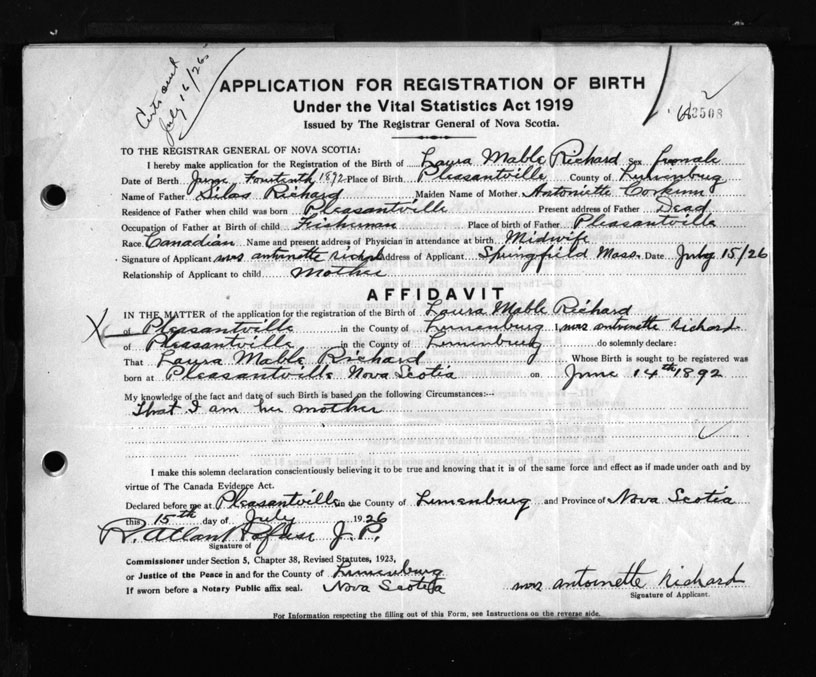 July 16/26
APPLICATION FOR REGISTRATION OF BIRTH
Under the Vital Statistics Act 1919
Issued by The Registrar General of Nova Scotia.
TO THE REGISTRAR GENERAL OF NOVA SCOTIA:
I hereby make application for the Registration of the Birth of Laura Mable Richard sex female
Date of Birth June Fourtenth 1892 Place of Birth Pleasantville County of Lunenburg
Name of Father Silas Richard Maiden Name of Mother Antoniette Corkum
Residence of Father when child was born Pleasantville Present address of Father Dead
Occupation of Father at Birth of child Fisherman Place of birth of Father Pleasantville
Race Canadian Name and present address of Physician in attendance at birth Midwife
Signature of Applicant mrs antoinette Richard Address of Applicant Springfield Mass. Date July 15/26
Relationship of Applicant to child Mother
AFFIDAVIT
IN THE MATTER of the application for the registration of the Birth of Laura Mable Richard
X of Pleasantville in the County of Lunenburg I, mrs antoinette Richard
of Pleasantville in the County of Lunenburg do solemnly declare:
That Laura Mable Richard Whose Birth is sought to be registered was
born at Pleasantville Nova Scotia on June 14th 1892
My knowledge of the fact and date of such Birth is based on the following Circumstances:—
That I am her mother
I make this solemn declaration conscientiously believing it to be true and knowing that it is of the same force and effect as if made under oath and by
virtue of The Canada Evidence Act.
Declared before me at Pleasantville in the County of Lunenburg and Province of Nova Scotia
this 15th day of July 1926
J. P.
Signature of
Commissioner under Section 5, Chapter 38, Revised Statutes, 1923,
or Justice of the Peace in and for the County of Lunenburg
If sworn before a Notary Public affix seal. Nova Scotia
mrs antoinette Richard
Signature of Applicant.
For Information respecting the filling out of this Form, see Instructions on the reverse side.